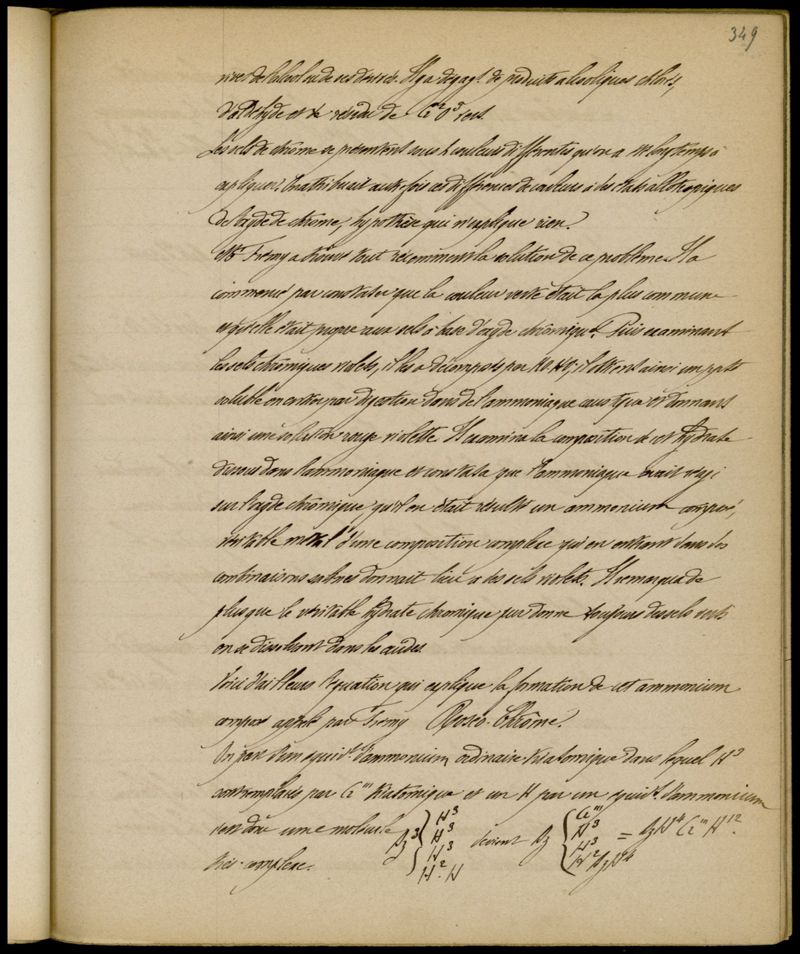 349
avec de l'alcool ou de ses dérivés. Il y a dégagt. de produits alcooliques chlorés,
d'aldéhyde et le résidu de Cr²O³ vert.
Les sels de chrôme se présentent sous 2 couleurs différentes qu'on a longtemps à
expliquer. On attribuait autrefois ces différences de couleurs à des états allotropiques
de l'oxyde de chrôme, hypothèse qui n'explique rien.
Mr Fremy a trouvé tout récemment la solution de ce problème. Il a
commencé par constater que la couleur verte était la plus commune
et qu'elle était propre aux sels à base d'oxyde chrômique. Puis examinant
les sels chrômiques violets, il les a décomposés par KO, HO; il obtient ainsi un ppté
soluble en entier par digestion dans de l'ammoniaque caustique et donnant
ainsi une solution rouge violette. Il examina la composition de cet hydrate
dissous dans l'ammoniaque et constata que l'ammoniaque avait réagi
sur l'oxyde chrômique, qu'il en était résulté un ammonium composé,
véritable métal d'une composition complexe qui en entrant dans des
combinaisons salines donnait lieu à des sels violets. Il remarqua de
plus que le véritable hydrate chromique pur donne toujours des sels verts
en se dissolvant dans les acides
Voici d'ailleurs l'équation qui explique la formation de cet ammonium
composé appelé par Fremy Roséo-Chrôme.
On part d'un équivt. d'ammonium ordinaire triatomique dans lequel H³
est remplacé par Cr''' triatomique et un H par un équivt. d'ammonium
sera donc une molécule Az³ { H³ H³ H³ H².H devient Az { Cr''' H³ H³ H²AzH⁴ = AzH⁴Cr'''H¹².
très complexe.